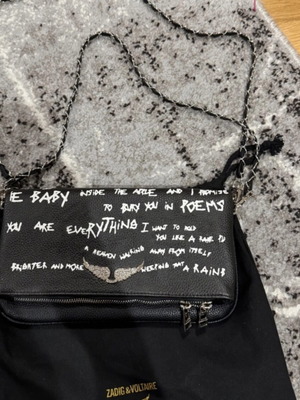 BABY INSIDE THE APPLE AND I PROMISE
TO BURY YOU IN POEMS
YOU ARE EVERYTHING I WANT TO HOLD
YOU LIKE A RARE
A HEAVEN WALKING AWAY FROM ITSELF
BRIGHTER AND MORE WEEPING THAT A RAINB
ZADIG&VOLTAIRE